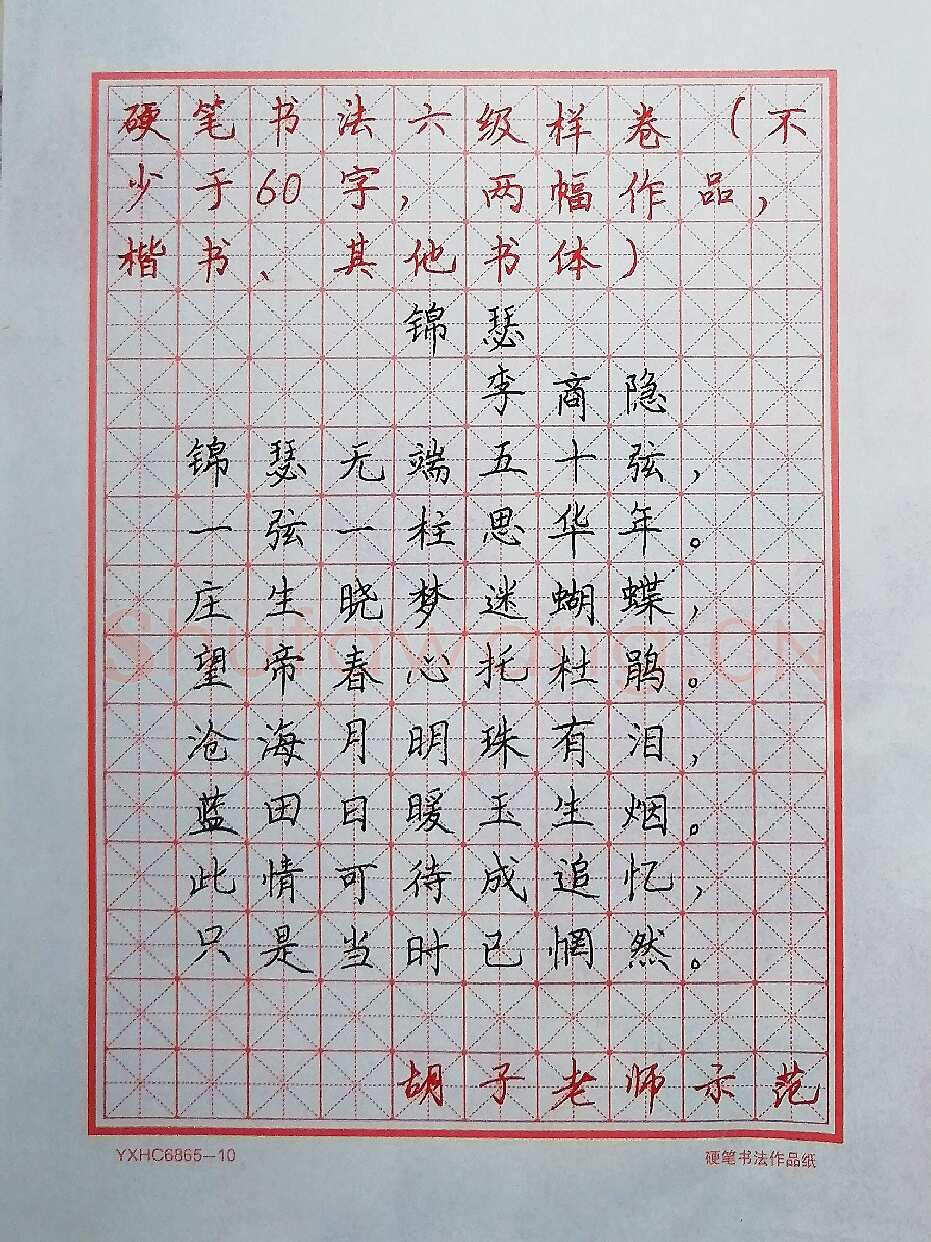 硬笔书法六级样卷（不
少于60字，两幅作品，
楷书、其他书体）
锦瑟
李商隐
锦瑟无端五十弦，
一弦一柱思华年。
庄生晓梦迷蝴蝶，
望帝春心托杜鹃。
沧海月明珠有泪，
蓝田日暖玉生烟。
此情可待成追忆，
只是当时已惘然。
胡子老师示范
YXHC6865-10
硬笔书法作品纸
Shufawang.CN